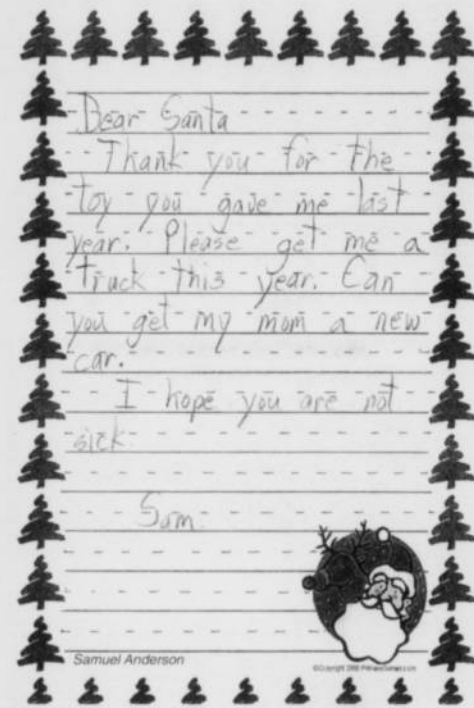 Dear Santa
Thank you for the
toy you gave me last
year. Please get me a
truck this year. Can
you get my mom a new
car.
I hope you are not
sick
Sam
Samuel Anderson